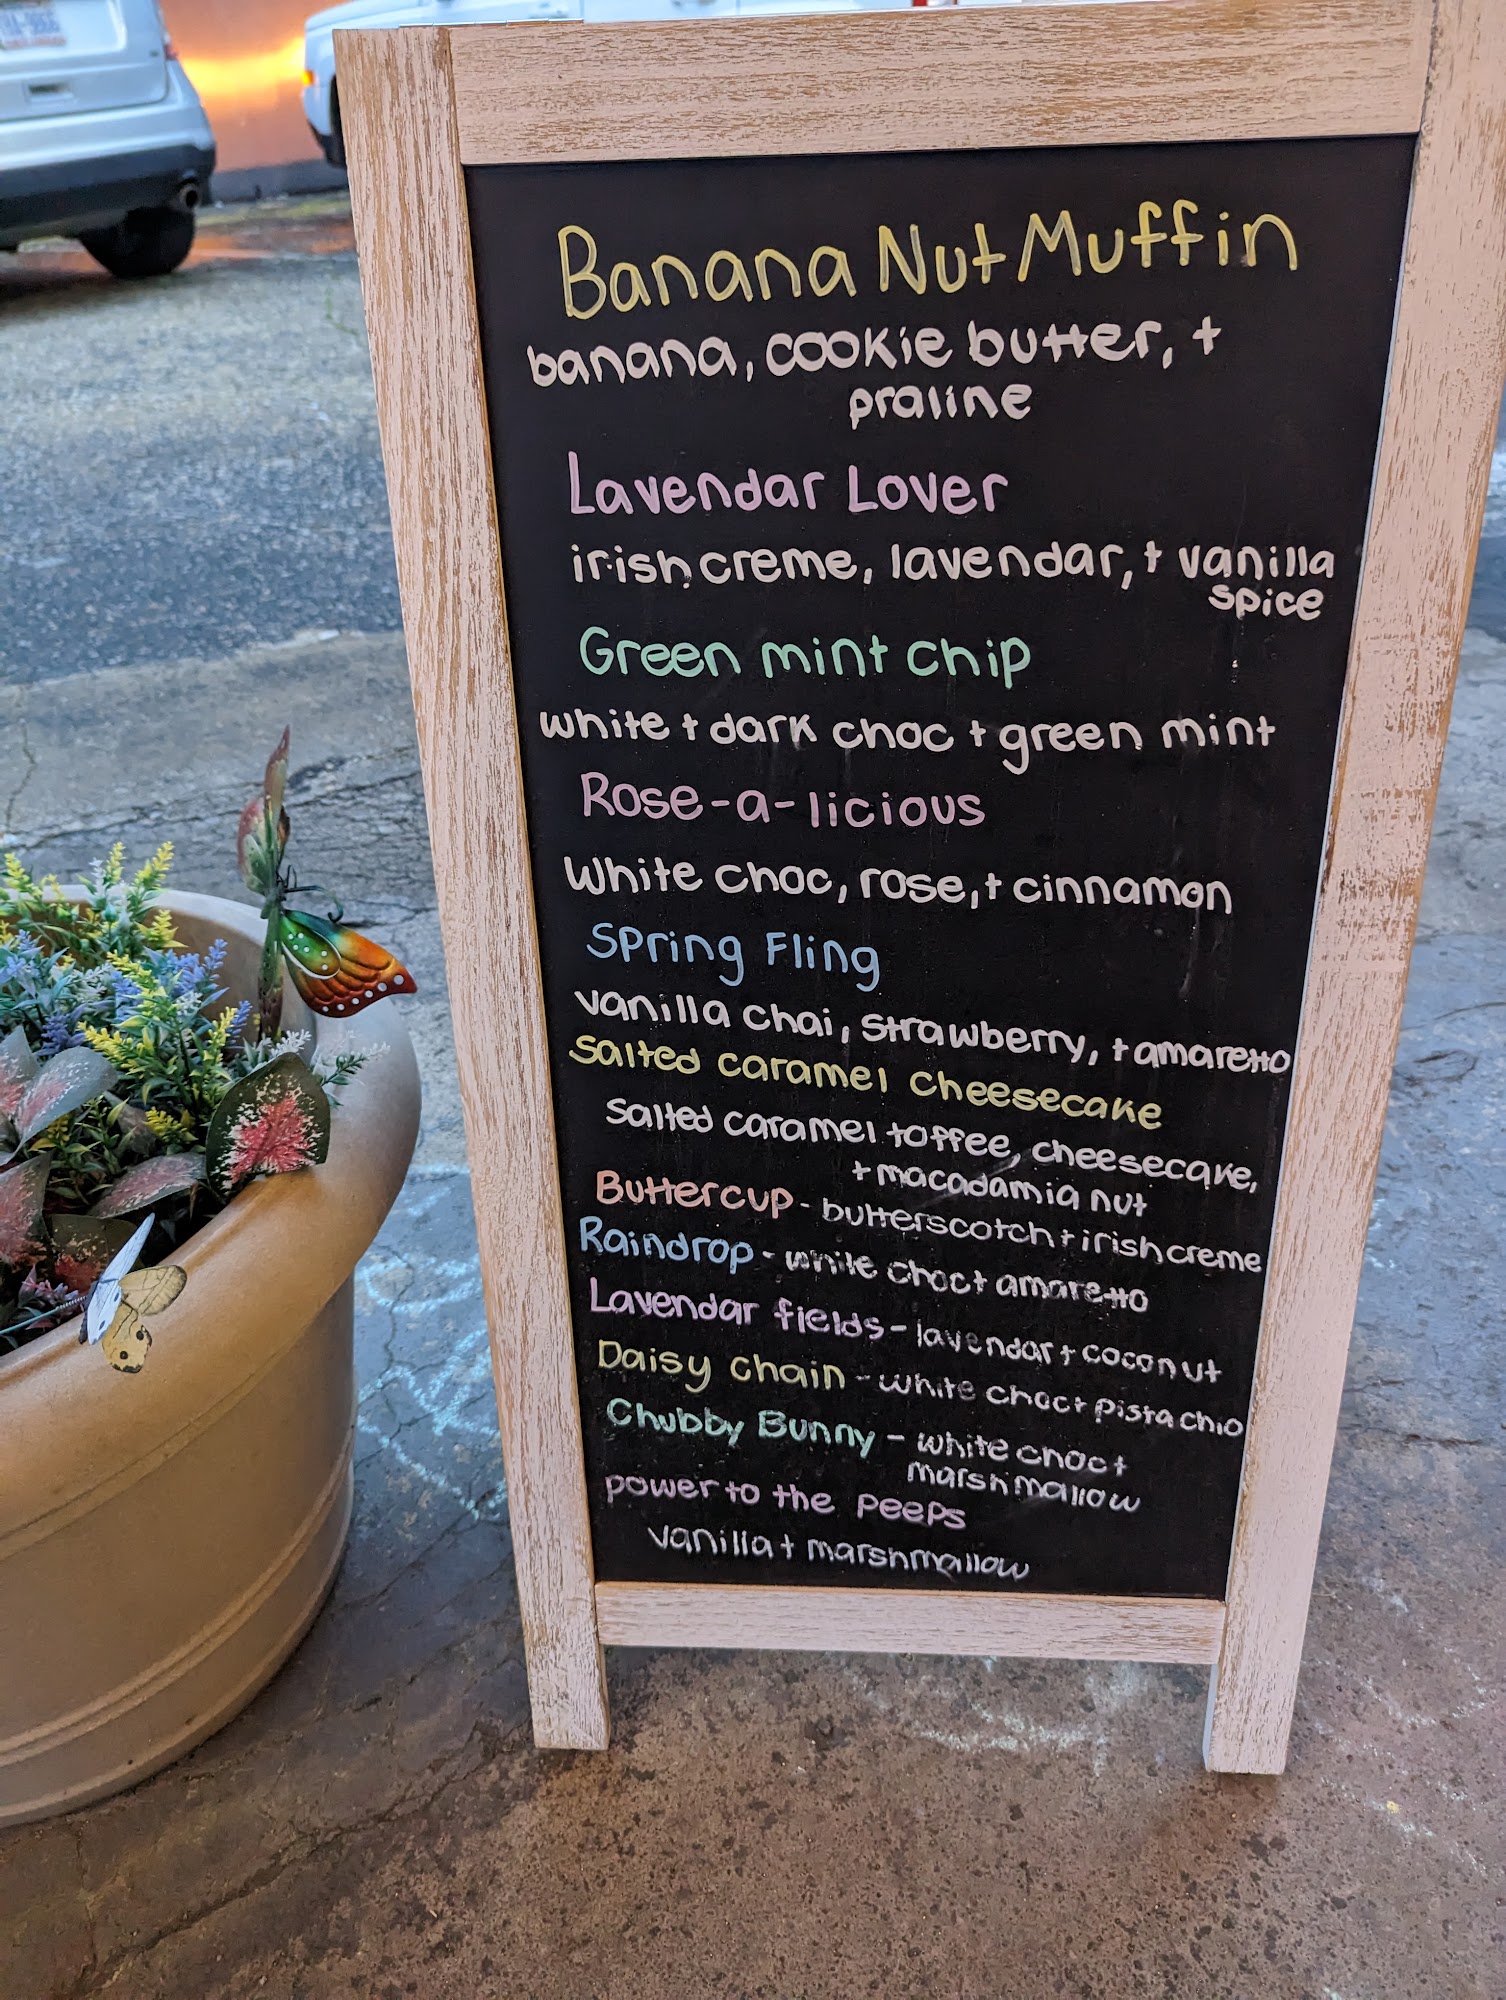 Banana Nut Muffin
banana, cookie butter, +
praline
Lavendar Lover
irish creme, lavendar, + vanilla
spice
Green mint chip
white + dark choc + green mint
Rose-a-licious
White choc, rose, + cinnamon
Spring Fling
vanilla chai, strawberry, + amaretto
Salted caramel cheesecake
Salted caramel toffee, cheesecake,
+ macadamia nut
Buttercup - butterscotch + irish creme
Raindrop - white choc + amaretto
Lavendar fields - lavendar + coconut
Daisy chain - white choc + pistachio
Chubby Bunny - white choc +
marshmallow
power to the peeps
vanilla + marshmallow